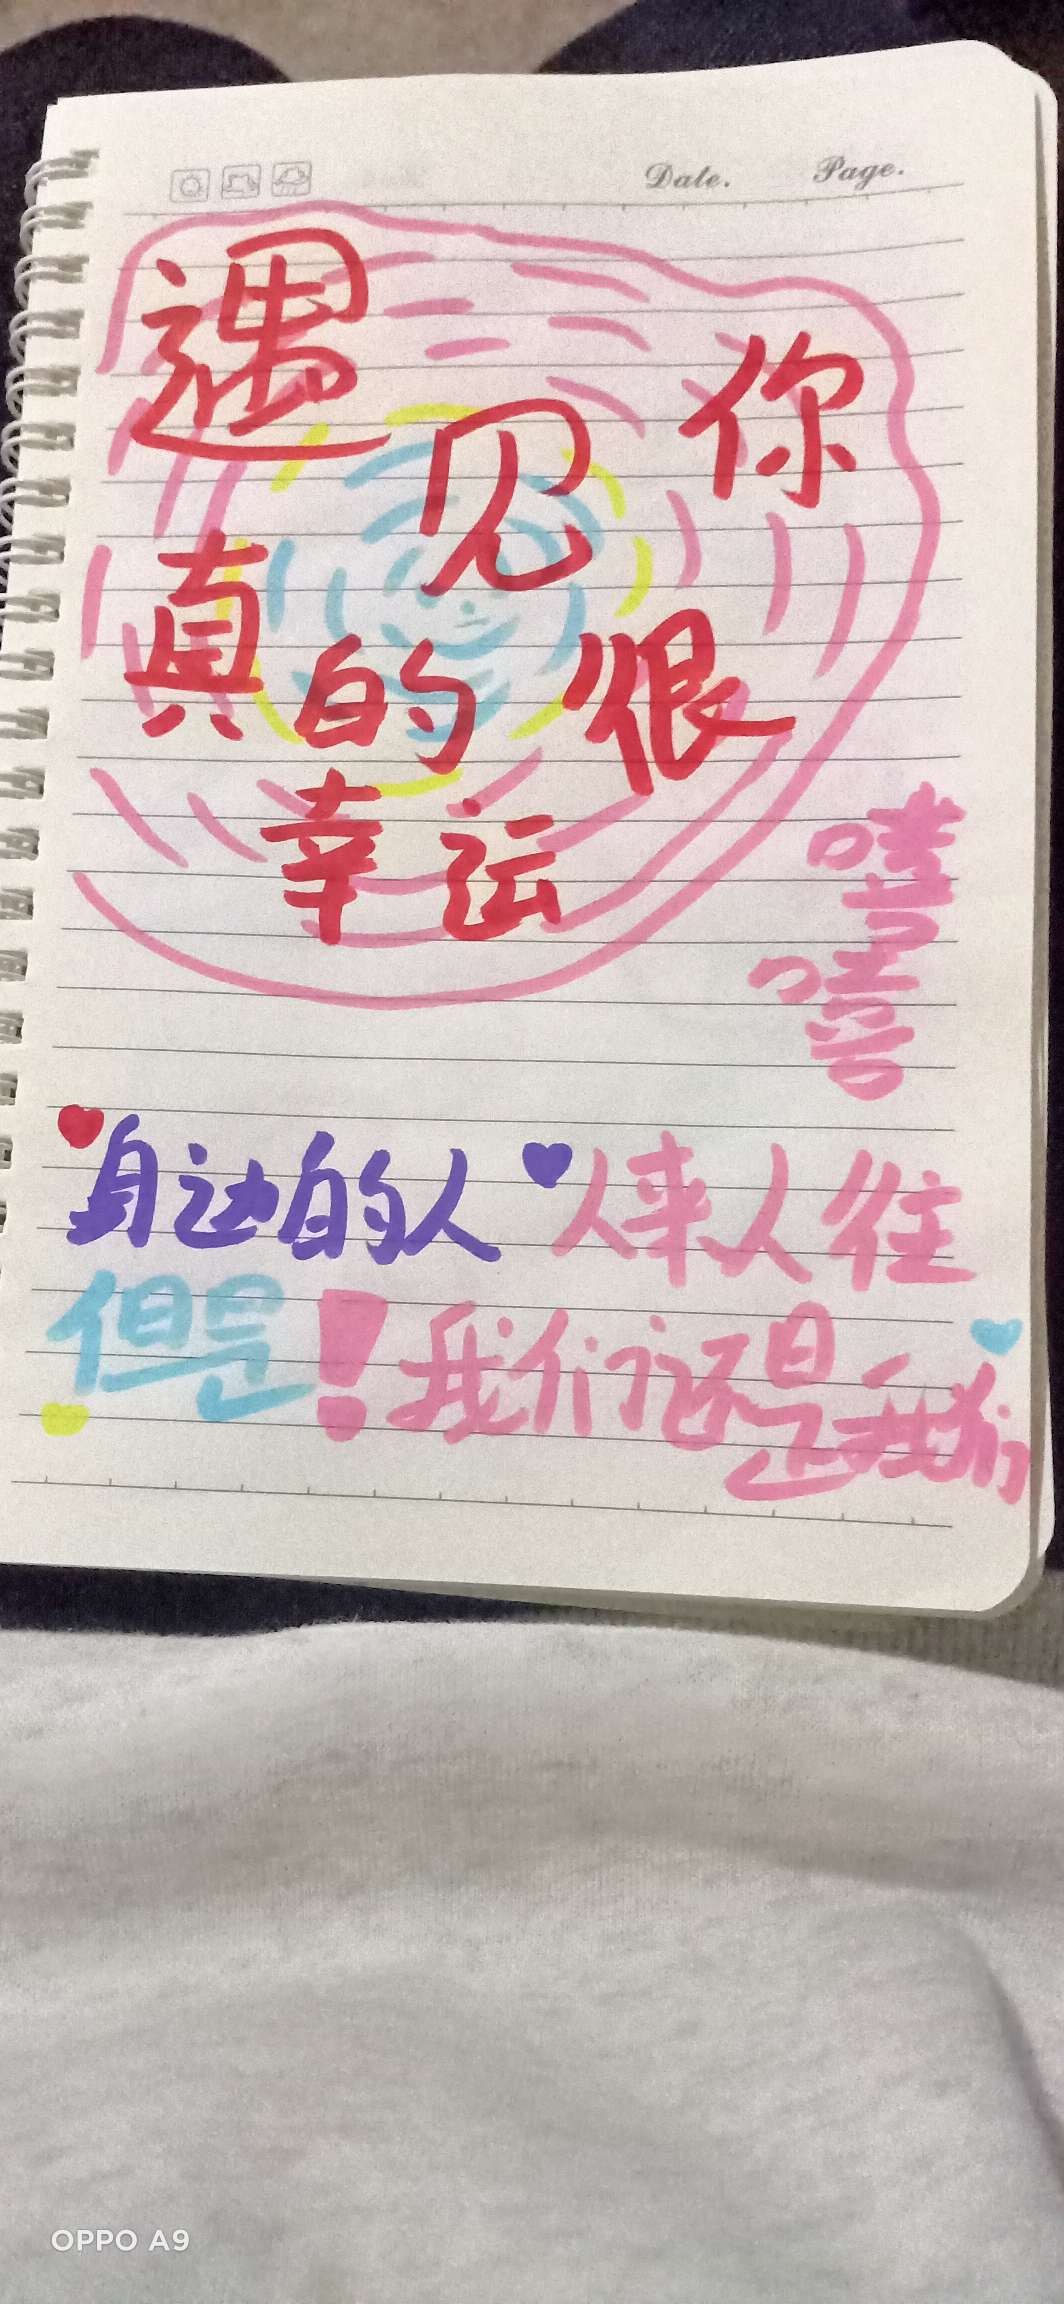 Date. Page.
遇见你
真的很
幸运
嘻嘻
身边的人 人来人往
但是！我们还是我们
OPPO A9